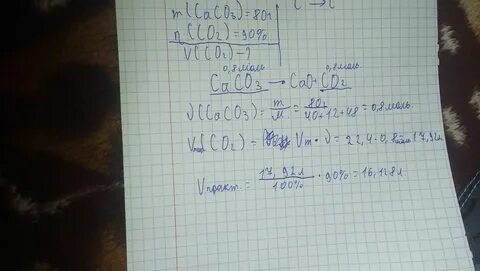 m(CaCO3)=80г
η(CO2)=90%
V(CO2)-?
C → C
0,8моль 0,8моль
CaCO3 → CaO+CO2
ν(CaCO3)= m/M = 80г/40+12+48 =0,8моль.
V(CO2)= Vm·ν=22,4·0,8=17,92л
Vпракт.= 17,92л/100% ·90%=16,128л